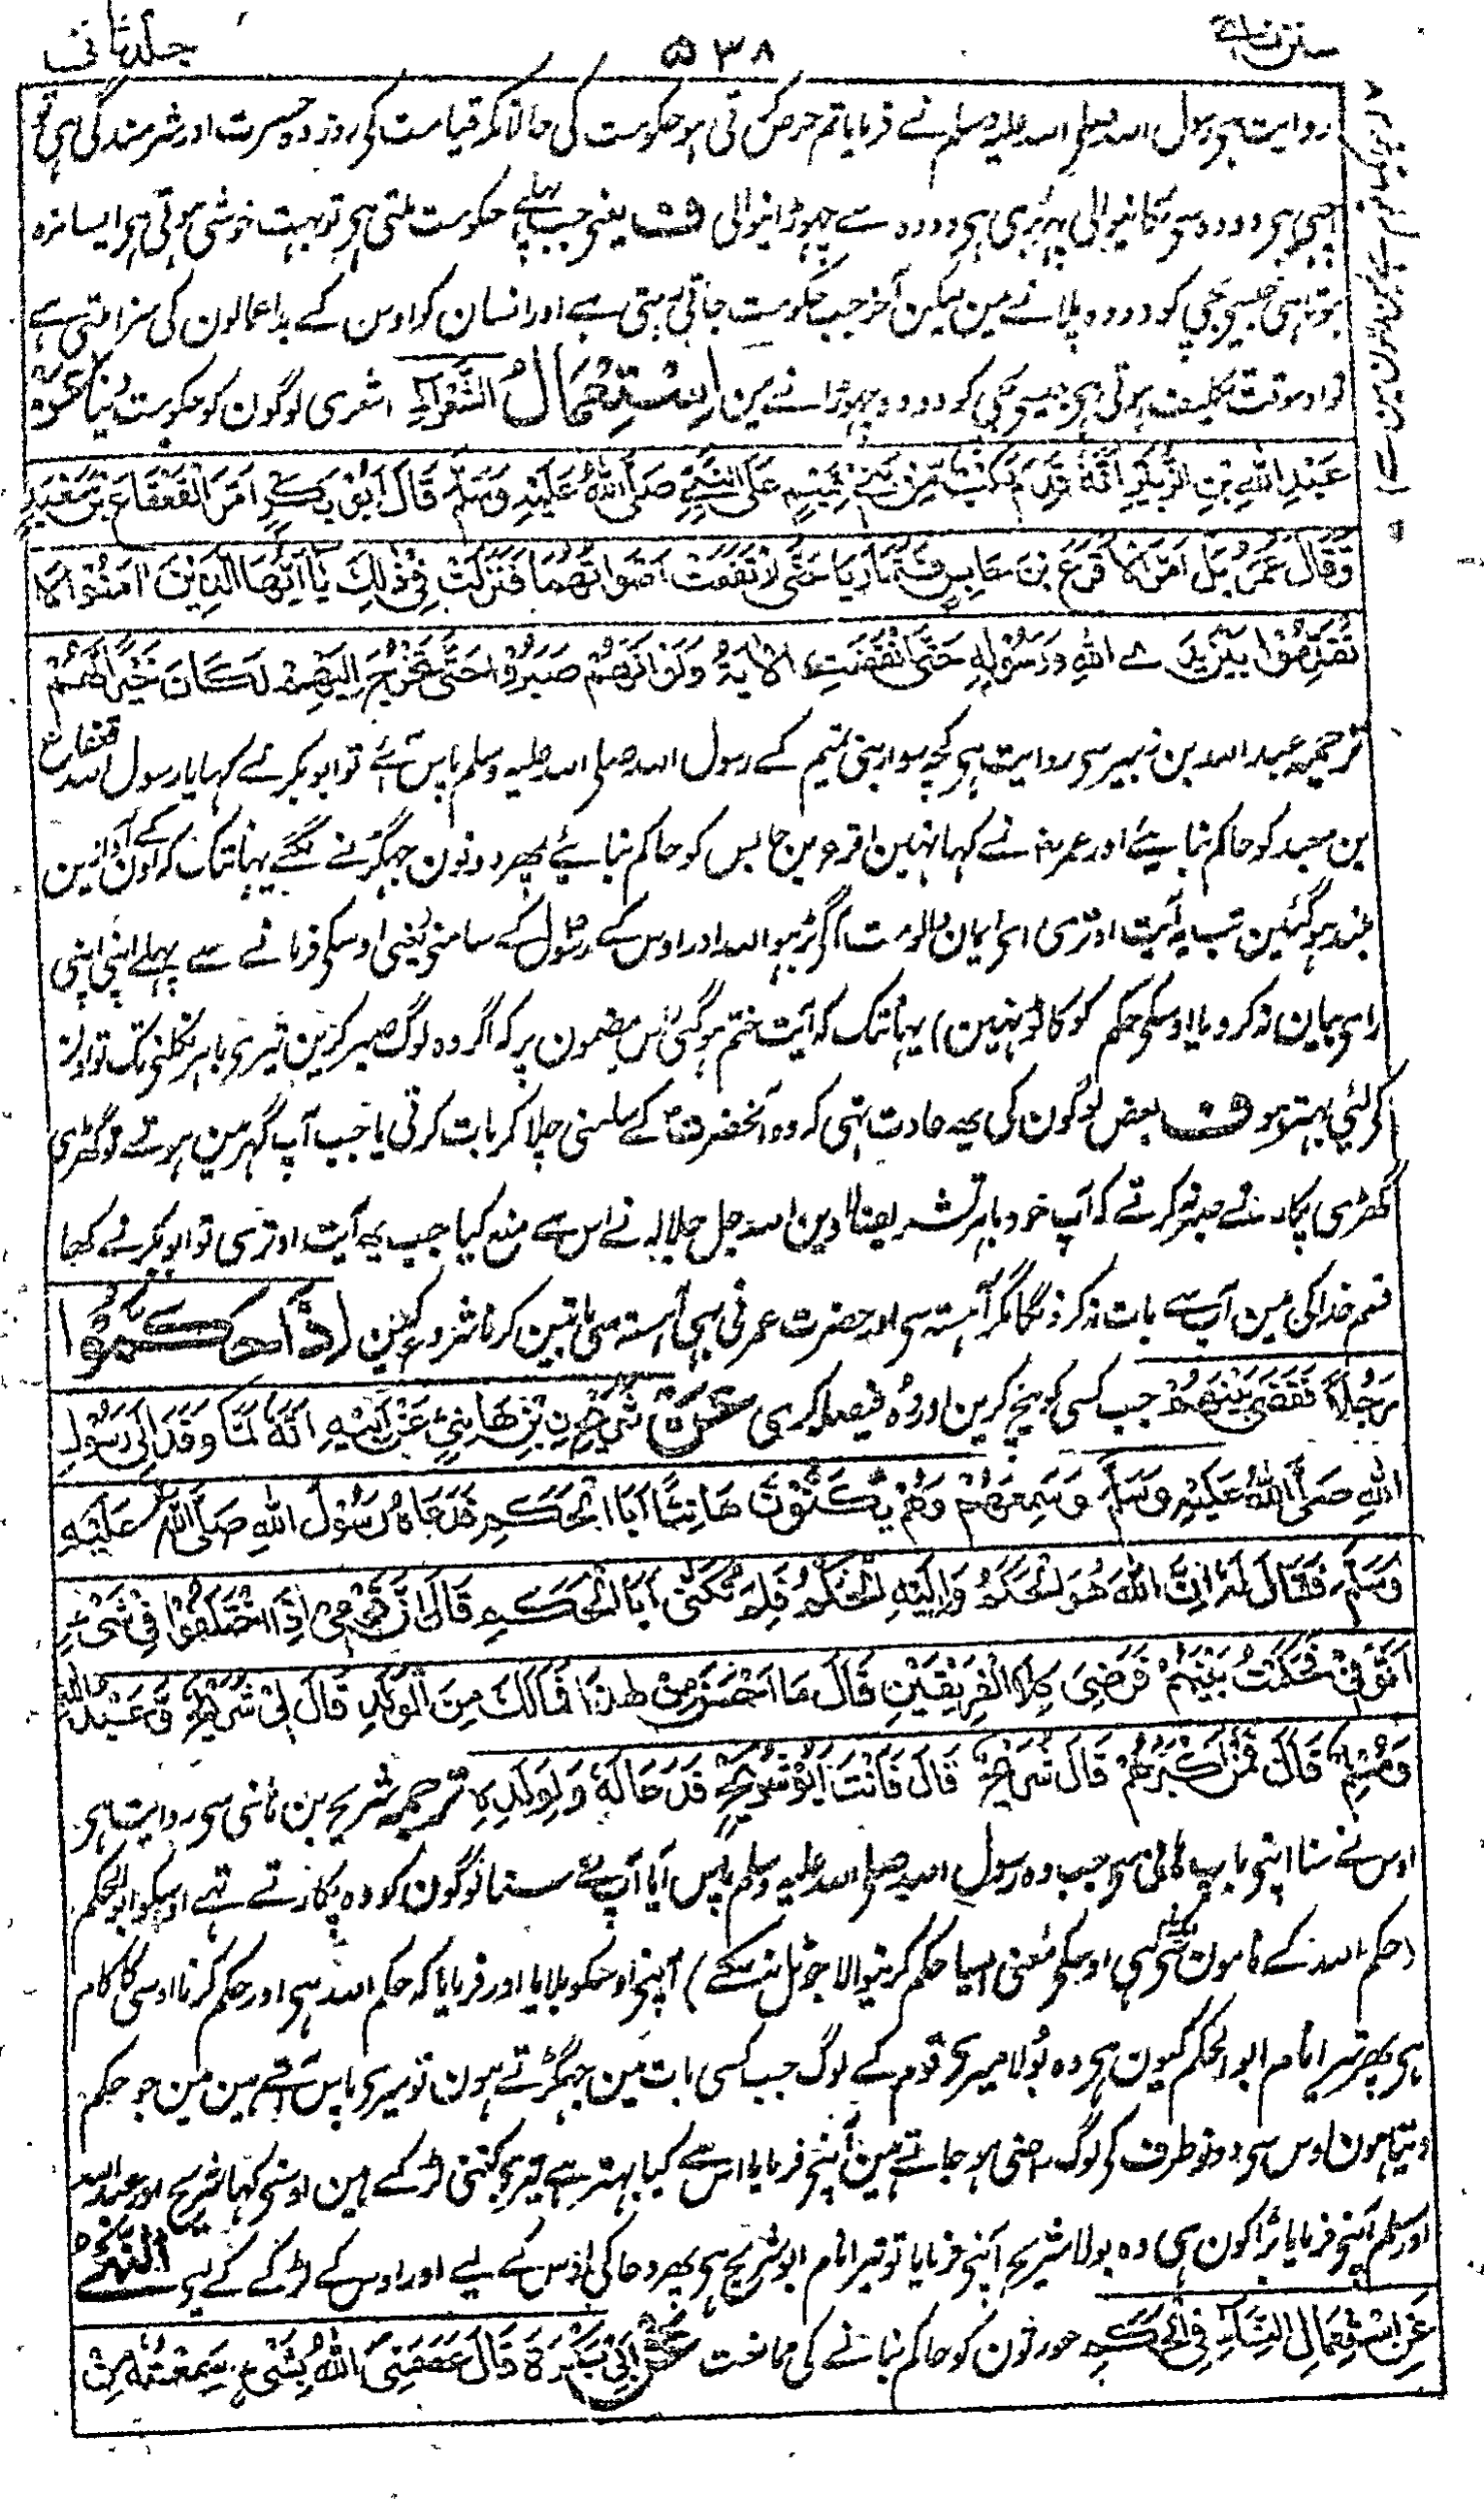 سنن نسائی ۵۳۸ جلد ثانی
روایت ہی رسول اللہ صلی اللہ علیہ وسلم نے فرمایا تم حرص کرتی ہو حکومت کی حالانکہ قیامت کی روز وہ حسرت اور شرمندگی ہی تو
اچہی ہی دودہ پلانیوالی پہر بری ہی دودہ سے چہوڑانیوالی ف یعنی جب پہلے حکومت ملتی ہی تو بہت خوشی ہوتی ہی ایسا مزہ
ہوتا ہی جیسی بچی کو دودہ پلانے مین لیکن آخر جب حکومت جاتی رہتی ہے اور انسان کو اوس کے بداعمالون کی سزا ملتی ہے
تو اوسوقت تکلیف ہوتی ہی جیسی بچی کو دودہ چہوڑانے مین اِسْتِعْمَالُ الشُّعَرَاءِ شعری لوگون کو حکومت دینا عَنْ
عَبْدِ اللّٰهِ بْنِ الزُّبَيْرِ اَنَّهٗ قَدِمَ رَكْبٌ مِّنْ بَنِيْ تَمِيْمٍ عَلَى النَّبِيِّ صَلَّى اللّٰهُ عَلَيْهِ وَسَلَّمَ قَالَ اَبُوْ بَكْرٍ اَمِّرِ الْقَعْقَاعَ بْنَ مَعْبَدٍ
وَّقَالَ عُمَرُ بَلْ اَمِّرِ الْاَقْرَعَ بْنَ حَابِسٍ فَتَمَارَيَا حَتّٰى ارْتَفَعَتْ اَصْوَاتُهُمَا فَنَزَلَتْ فِيْ ذٰلِكَ يَا اَيُّهَا الَّذِيْنَ اٰمَنُوْا لَا
تُقَدِّمُوْا بَيْنَ يَدَيِ اللّٰهِ وَرَسُوْلِهٖ حَتَّى انْقَضَتِ الْاٰيَةُ وَلَوْ اَنَّهُمْ صَبَرُوْا حَتّٰى تَخْرُجَ اِلَيْهِمْ لَكَانَ خَيْرًا لَّهُمْ
ترجمہ عبد اللہ بن زبیر سی روایت ہی کچہ سوار بنی تمیم کے رسول اللہ صلی اللہ علیہ وسلم پاس آئے تو ابوبکر نے کہا یا رسول اللہ قعقاع
بن معبد کو حاکم بنائیے اور عمر نے کہا نہین اقرع بن حابس کو حاکم بنائیے پہر دونون جہگڑنے لگے یہانتک کہ اون کے آوازین
بلند ہوگئین تب یہ آیت اوتری ای ایمان والو مت آگے بڑہو اللہ اور اوس کے رسول کے سامنی یعنی اوسکی فرمانے سے پہلے اپنی اپنی
رای بیان نہ کرو یا اوسکی حکم کو کاٹو نہین) یہانتک کہ آیت ختم ہوگئی اس مضمون پر کہ اگر وہ لوگ صبر کرین تیری باہر نکلنی تک تو اون
کی لئی بہتر ہو ف بعض لوگون کی یہ عادت تہی کہ وہ آنحضرت کے سامنی چلا کر بات کرتی یا جب آپ گہر مین ہوتے تو گہڑی
گہڑی پکارتے صبر نہ کرتے کہ آپ خود باہر تشریف لاوین اللہ جل جلالہ نے اس سے منع کیا جب یہ آیت اوتری تو ابوبکر نے کہا
قسم خدا کی مین آپ سے بات نہ کرونگا مگر آہستہ سی اور حضرت عمر نی بہی آہستہ سی باتین کرنا شروع کین اِذَا حَكَّمُوْا
رَجُلًا فَقَضٰى بَيْنَهُمْ جب کسی کو پنچ کرین اور وہ فیصلہ کری عَنْ شُرَيْحِ بْنِ هَانِئٍ عَنْ اَبِيْهِ اَنَّهٗ لَمَّا وَفَدَ اِلٰى رَسُوْلِ
اللّٰهِ صَلَّى اللّٰهُ عَلَيْهِ وَسَلَّمَ وَسَمِعَهُمْ وَهُمْ يَكْنُوْنَ هَانِئًا اَبَا الْحَكَمِ فَدَعَاهُ رَسُوْلُ اللّٰهِ صَلَّى اللّٰهُ عَلَيْهِ
وَسَلَّمَ فَقَالَ لَهٗ اِنَّ اللّٰهَ هُوَ الْحَكَمُ وَاِلَيْهِ الْحُكْمُ فَلِمَ تُكَنّٰى اَبَا الْحَكَمِ قَالَ اِنَّ قَوْمِيْ اِذَا اخْتَلَفُوْا فِيْ شَيْءٍ
اَتَوْنِيْ فَحَكَمْتُ بَيْنَهُمْ فَرَضِيَ كِلَا الْفَرِيْقَيْنِ قَالَ مَا اَحْسَنَ مِنْ هٰذَا فَمَا لَكَ مِنَ الْوَلَدِ قَالَ لِيْ شُرَيْحٌ وَّعَبْدُ اللّٰهِ
وَمُسْلِمٌ قَالَ فَمَنْ اَكْبَرُهُمْ قَالَ شُرَيْحٌ قَالَ فَاَنْتَ اَبُوْ شُرَيْحٍ فَدَعَا لَهٗ وَلِوَلَدِهٖ ترجمہ شریح بن ہانی سی روایت ہی
اوس نے سنا اپنی باپ ہانی سی جب وہ رسول اللہ صلی اللہ علیہ وسلم پاس آیا آپ نے سنا لوگون کو وہ پکارتے تہے اوسکو ابوالحکم
(حکم اللہ کے نامون مین سی ہی اوسکی معنی ایسا حکم کرنیوالا جو ٹل نہ سکے) آپنی اوسکو بلایا اور فرمایا کہ حکم اللہ ہی اور حکم کرنا اوسی کا کام
ہی پہر تیرا نام ابوالحکم کیون ہی وہ بولا میری قوم کے لوگ جب کسی بات مین جہگڑتے ہون تو میری پاس آتے ہین مین جو حکم
دیتا ہون اوس سی دونو طرف کی لوگ راضی ہو جاتے ہین آپنی فرمایا اس سے کیا بہتر ہے تیری کتنی لڑکے ہین اوسنی کہا شریح اور عبد اللہ
اور مسلم آپنی فرمایا بڑا کون ہی وہ بولا شریح آپنی فرمایا تو تیرا نام ابوشریح ہی پہر دعا کی اوس کے لیے اور اوس کے لڑکے کے لیے اَلنَّهْيُ
عَنِ اسْتِعْمَالِ النِّسَاءِ فِي الْحُكْمِ عورتون کو حاکم بنانے کی ممانعت عَنْ اَبِيْ بَكْرَةَ قَالَ عَصَمَنِيَ اللّٰهُ بِشَيْءٍ سَمِعْتُهٗ مِنْ